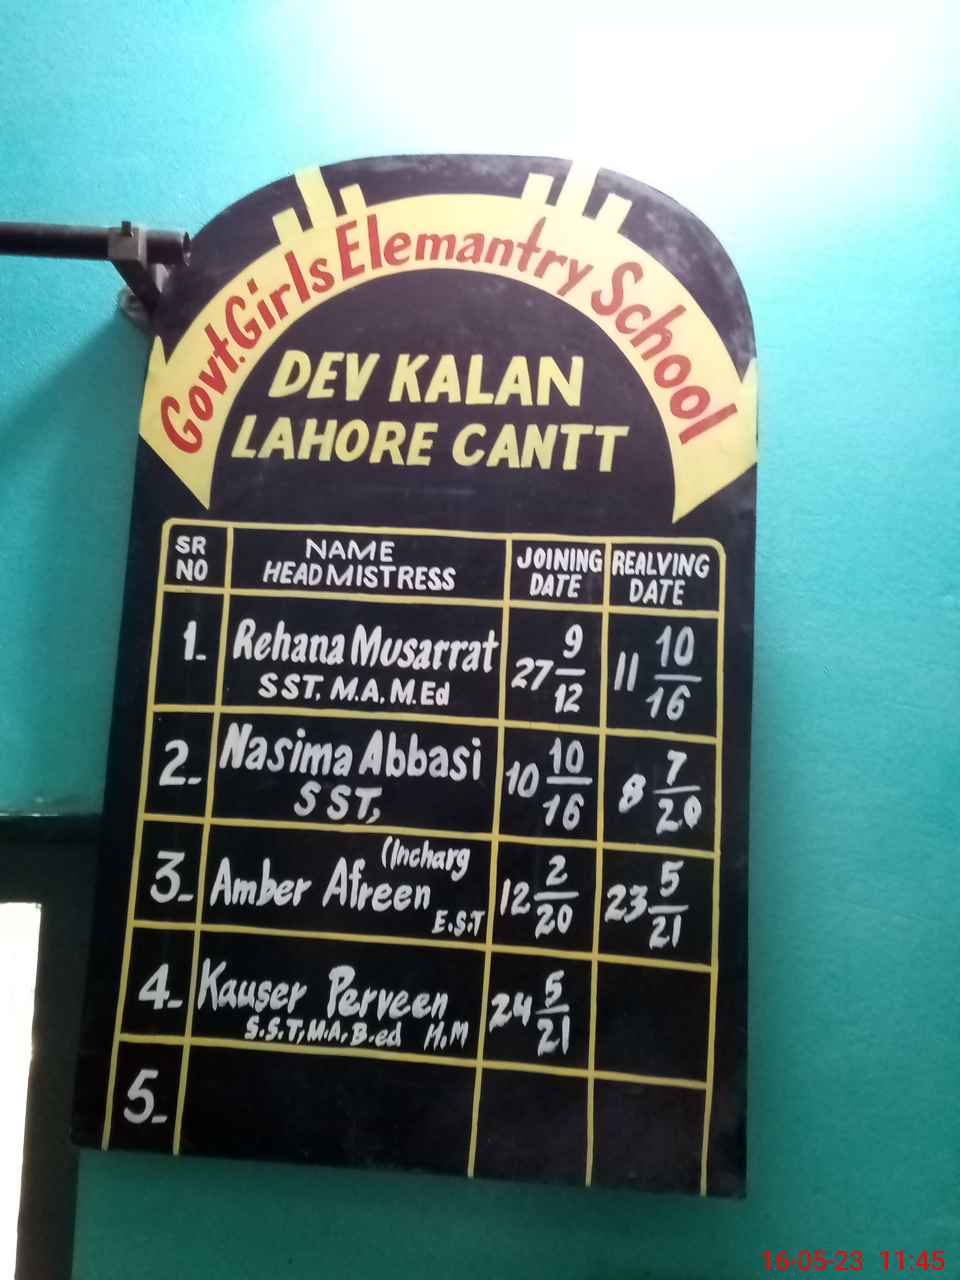 Govt. Girls Elemantry School
DEV KALAN
LAHORE CANTT
SR NO
NAME HEADMISTRESS
JOINING DATE
REALVING DATE
1- Rehana Musarrat 27 9/12 11 10/16
SST. M.A. M.Ed
2- Nasima Abbasi 10 10/16 8 7/20
SST,
(Incharg
3- Amber Afreen 12 2/20 23 5/21
E.S.T
4- Kauser Perveen 24 5/21
S.S.T, M.A, B.ed H.M
5-
16-05-23 11:45